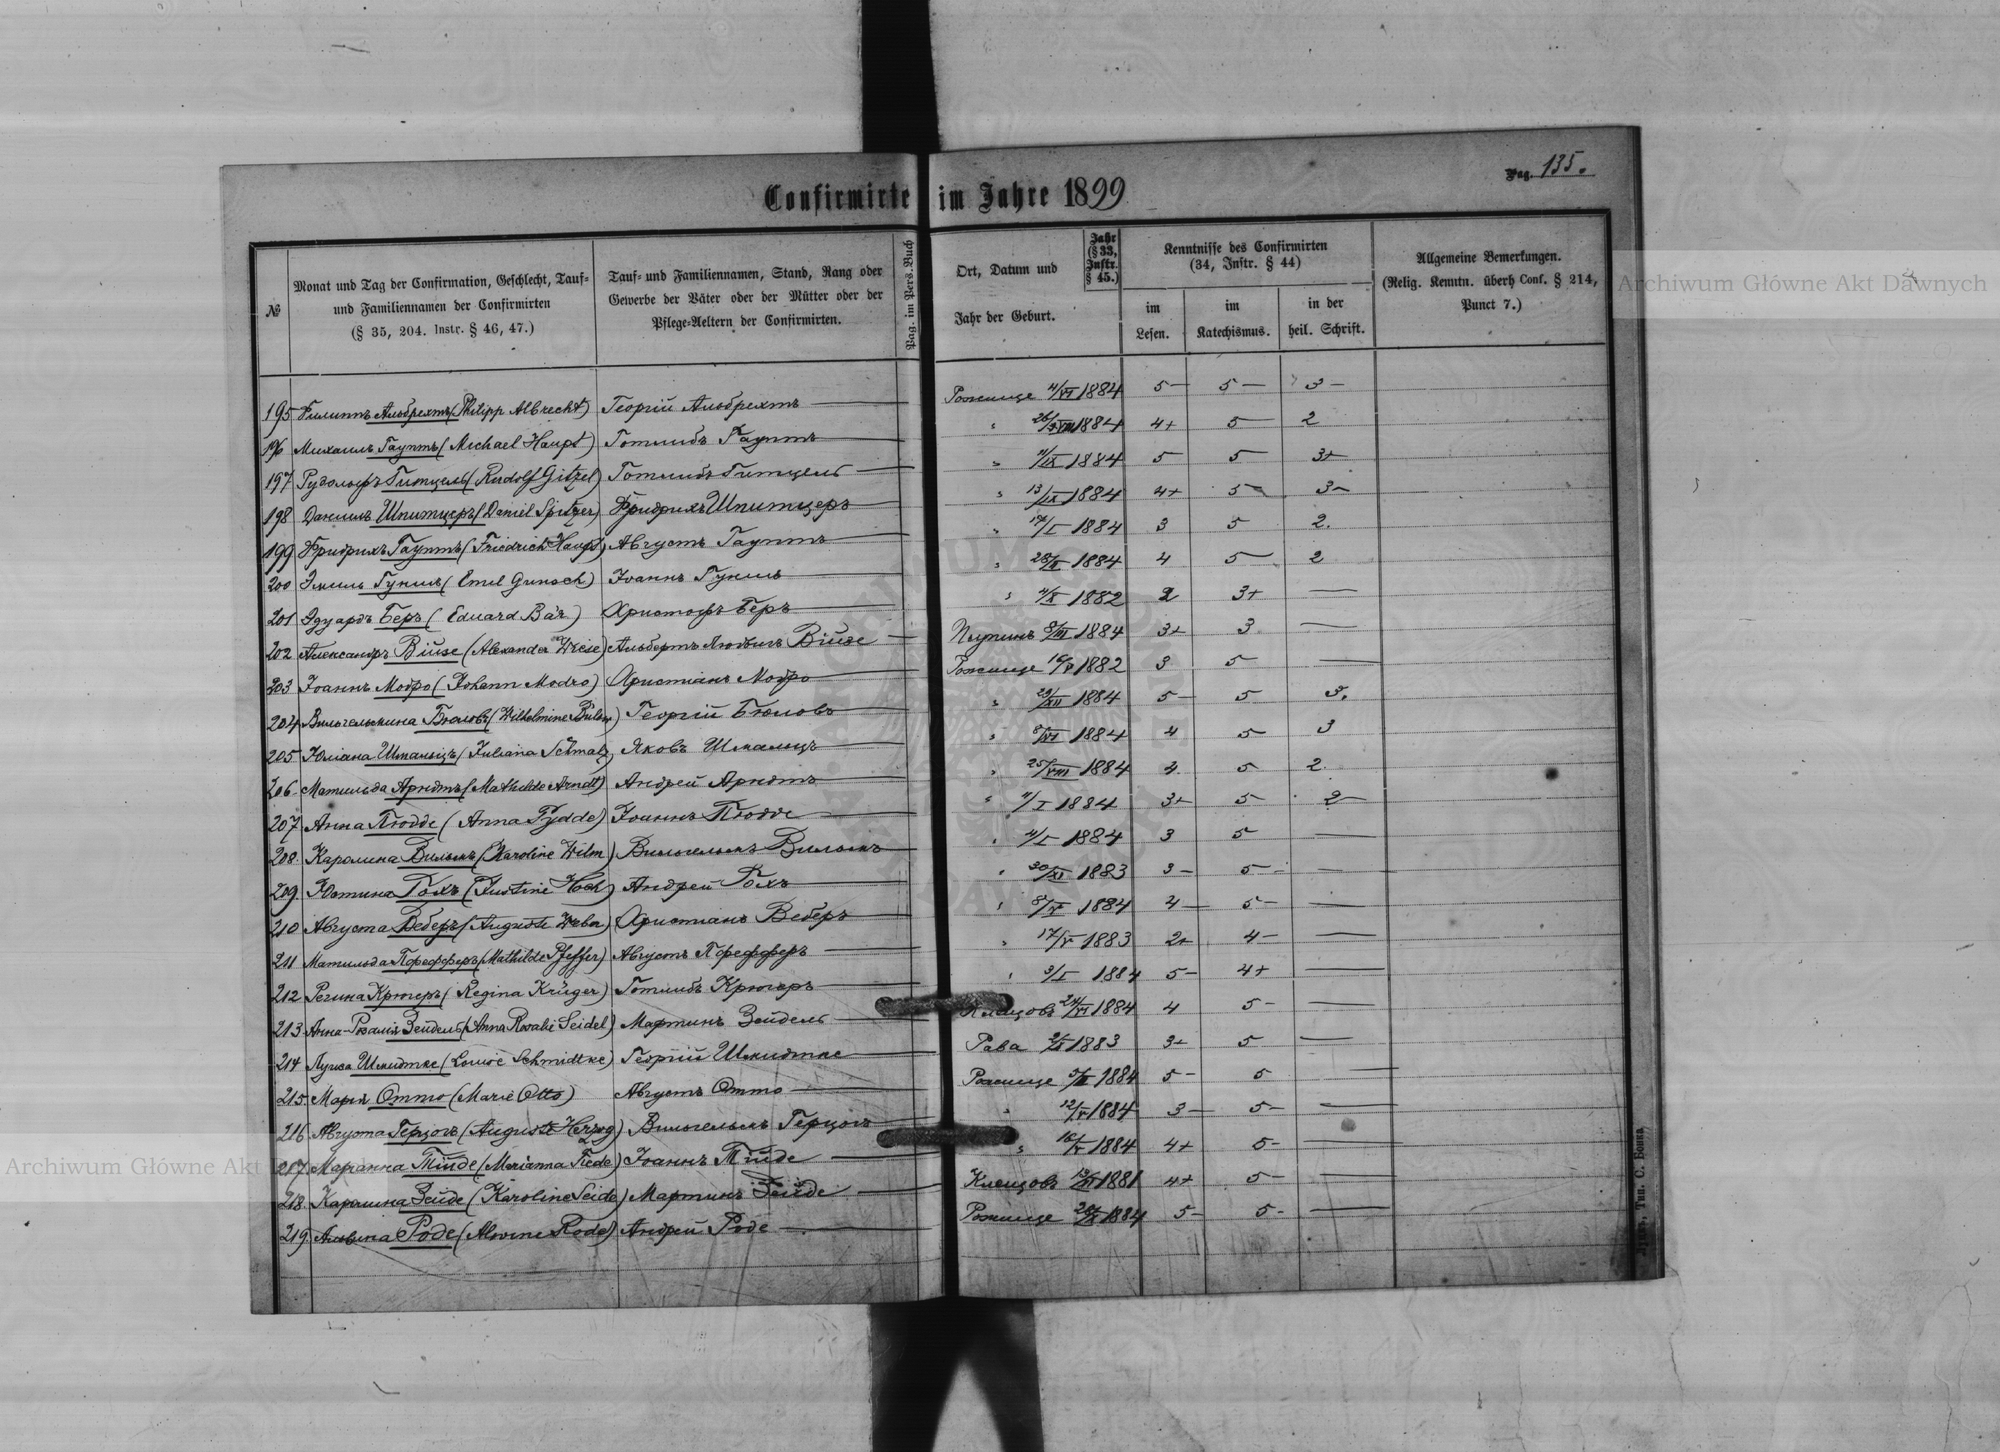 Pag. 135.
Confirmirte im Jahre 1899
№
Monat und Tag der Confirmation, Geschlecht, Tauf-
und Familiennamen der Confirmirten
(§ 35, 204. Instr. § 46, 47.)
Tauf- und Familiennamen, Stand, Rang oder
Gewerbe der Väter oder der Mütter oder der
Pflege-Aeltern der Confirmirten.
Pag. im Pers. Buch
Ort, Datum und
Jahr der Geburt.
Jahr
(§ 33,
Instr.
§ 45.)
Kenntnisse des Confirmirten
(34, Instr. § 44)
im
Lesen.
im
Katechismus.
in der
heil. Schrift.
Allgemeine Bemerkungen.
(Relig. Kenntn. überh Conf. § 214,
Punct 7.)
195 Филиппъ Альбрехтъ (Philipp Albrecht) Георгій Альбрехтъ — Рожище 4/VI 1884 5— 5— 3—
196 Михаилъ Гауптъ (Michael Haupt) Готлибъ Гауптъ — " 1884 4+ 5— 2
197 Рудольфъ Гитцель (Rudolf Gitzel) Готлибъ Гитцель — " /IX 1884 5 5 3+
198 Даніилъ Шпитцеръ (Daniel Spitzer) Фридрихъ Шпитцеръ — " 13/IX 1884 4+ 5— 3—
199 Фридрихъ Гауптъ (Friedrich Haupt) Августъ Гауптъ — " 17/I 1884 3 5 2.
200 Эмиль Гунишъ (Emil Gunsch) Іоаннъ Гуншъ — " 1884 4 5— 2
201 Эдуардъ Беръ (Eduard Bär) Христофъ Беръ — " 4/X 1882 2 3+ —
202 Александръ Визе (Alexander Wiese) Альбертъ Людвигъ Визе — 1884 3+ 3 —
203 Іоаннъ Модро (Johann Modro) Христіанъ Модро — Рожище 16/V 1882 3 5 —
204 Вильгельмина Бюловъ (Wilhelmine Bülow) Георгій Бюловъ — " 29/XII 1884 5— 5 3.
205 Юліана Шмальцъ (Juliana Schmalz) Яковъ Шмальцъ — " 8/VI 1884 4 5 3
206. Матильда Арндтъ (Mathilde Arndt) Андрей Арндтъ — " 25/VIII 1884 4. 5 2.
207 Анна Пюдде (Anna Pydde) Іоаннъ Пюдде — " /I 1884 3+ 5 2
208. Каролина Вильмъ (Karoline Wilm) Вильгельмъ Вильмъ — " 4/I 1884 3 5 —
209. Юстина Гохъ (Justine Hoch) Андрей Гохъ — " 30/XI 1883 3— 5— —
210 Августа Веберъ (Auguste Weber) Христіанъ Веберъ — " 1884 4— 5— —
211 Матильда Пфефферъ (Mathilde Pfeffer) Августъ Пфефферъ — " 17/V 1883 2+ 4— —
212 Регина Крюгеръ (Regina Krüger) Готлибъ Крюгеръ — " 3/I 1884 5— 4+ —
213. Анна-Розалія Зейдель (Anna Rosalie Seidel) Мартинъ Зейдель — Клепцовъ 24/VI 1884 4 5— —
214 Луиза Шмидтке (Louise Schmidtke) Георгій Шмидтке — Рава 1883 3+ 5 —
215. Марія Отто (Marie Otto) Августъ Отто — Рожище 1884 5— 5 —
216 Августа Герцогъ (Auguste Herzog) Вильгельмъ Герцогъ — " 12/V 1884 3— 5— —
217 Маріанна Тиде (Marianna Tiede) Іоаннъ Тиде — " 16/V 1884 4+ 5— —
218. Каролина Зейде (Karoline Seide) Мартинъ Зейде — Клепцовъ 1881 4+ 5— —
219. Альвина Роде (Alwine Rode) Андрей Роде — Рожище 1884 5— 5— —
Тип. С. Бошка
Archiwum Główne Akt Dawnych
Archiwum Główne Akt